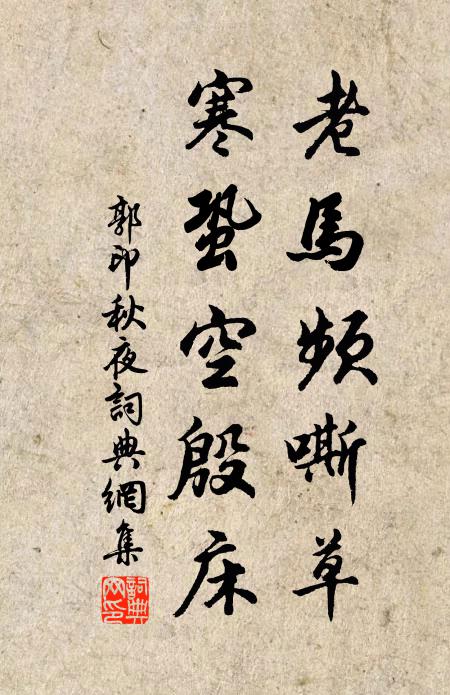 老馬頻嘶草
寒蛩空殷床
郭印秋夜詞典網集